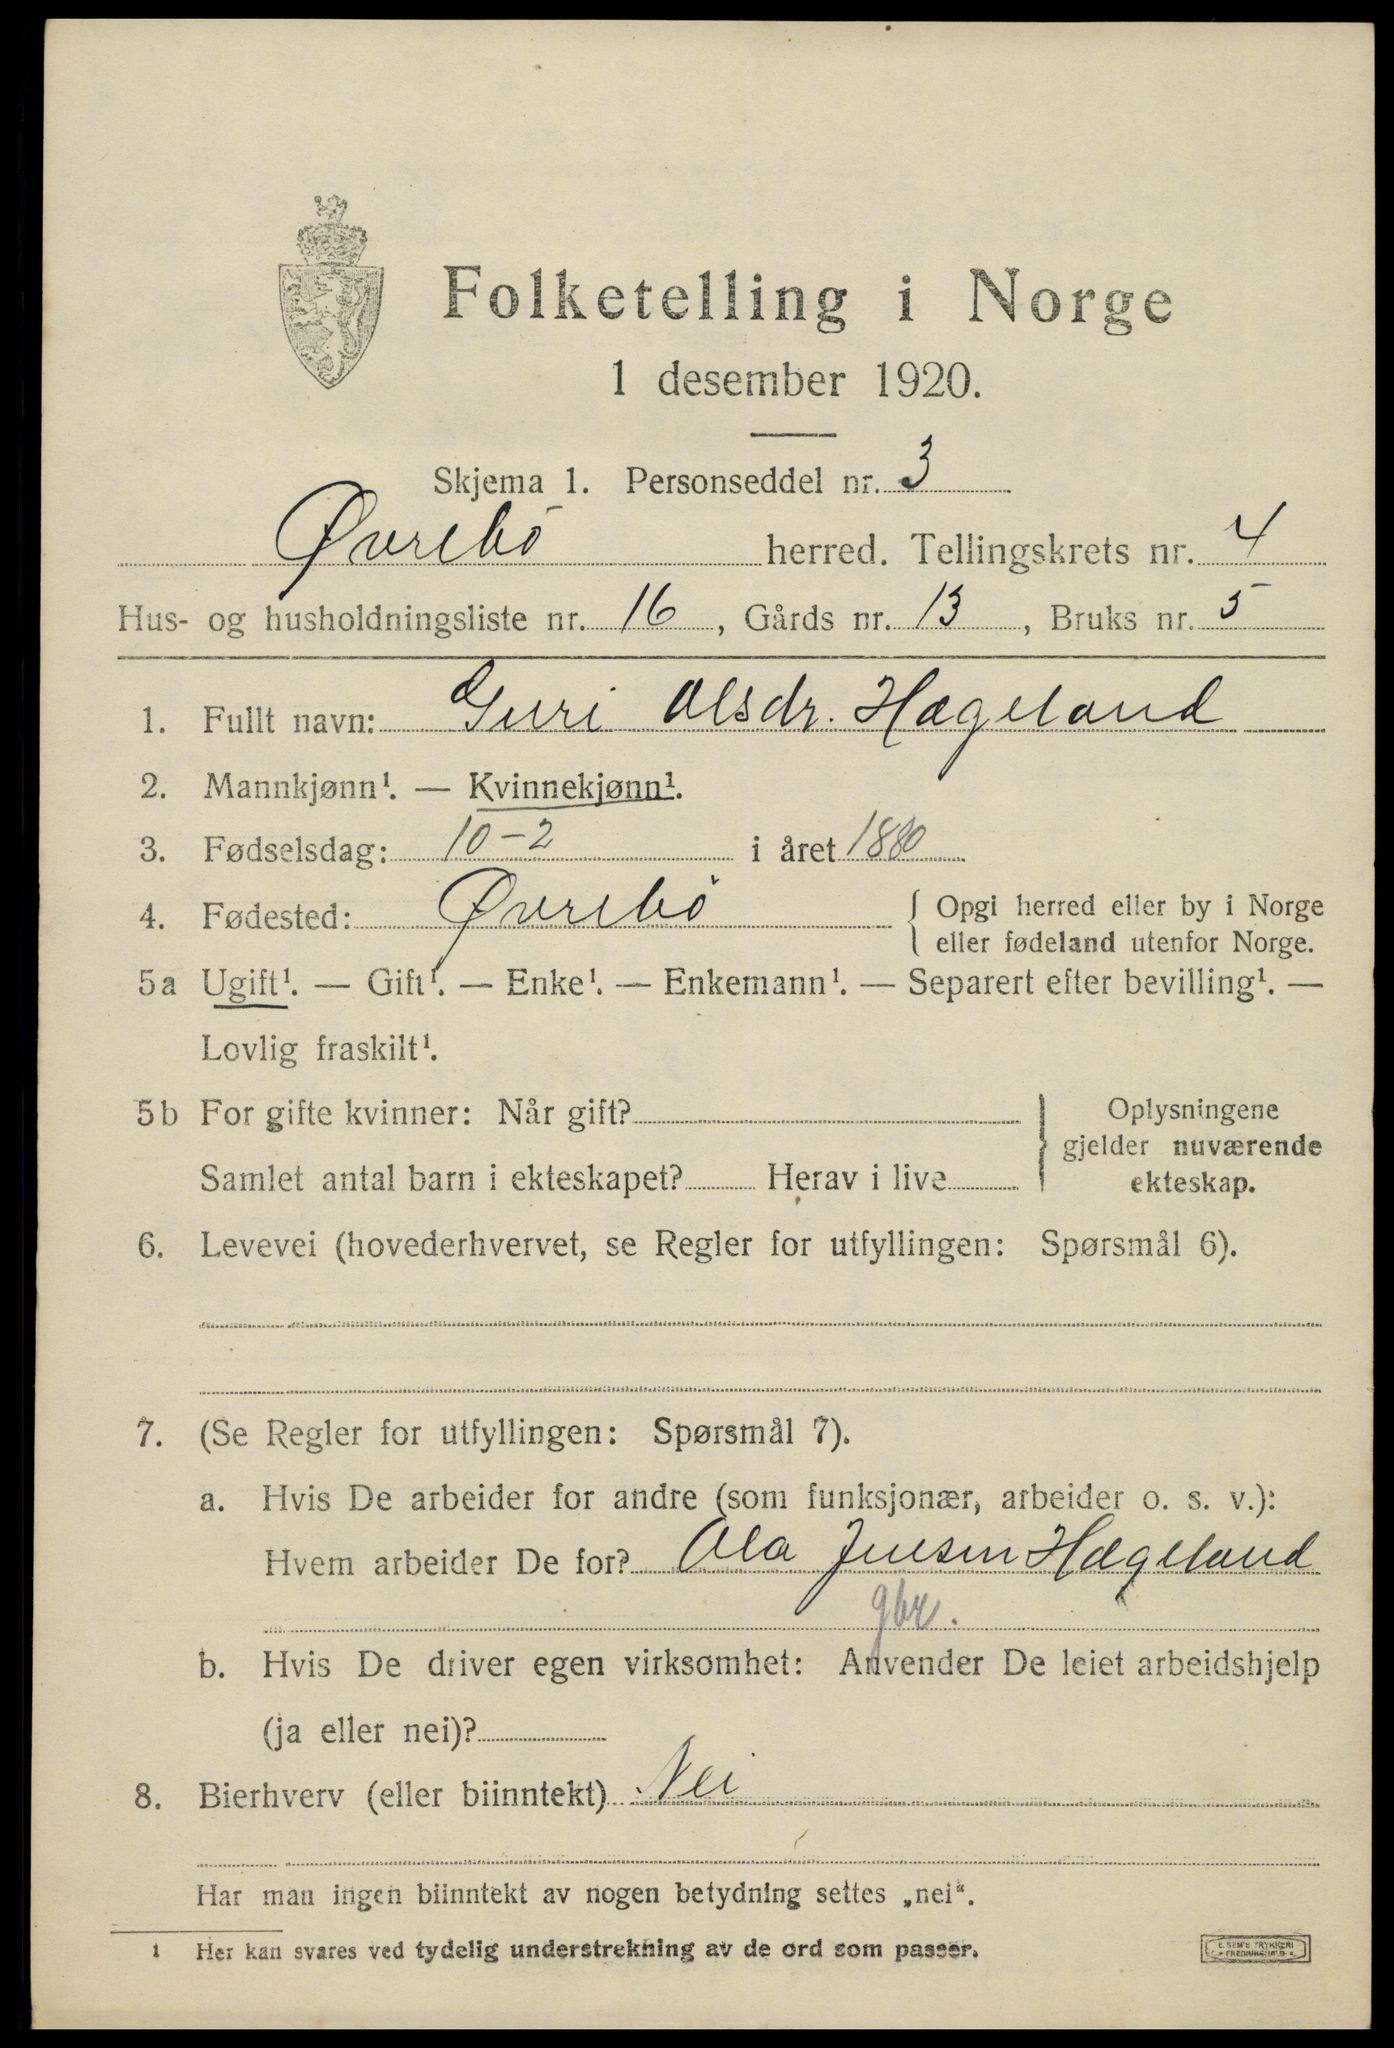 Folketelling i Norge
1 desember 1920.
Skjema 1. Personseddel nr. 3
Øvrebö herred. Tellingskrets nr. 4
Hus- og husholdningsliste nr. 16, Gårds nr. 13, Bruks nr. 5
1. Fullt navn: Guri Olsdr. Hægeland
2. Mannkjønn¹. — Kvinnekjønn¹.
3. Fødselsdag: 10-2 i året 1880
4. Fødested: Øvrebö { Opgi herred eller by i Norge
eller fødeland utenfor Norge.
5a Ugift¹. — Gift¹. — Enke¹. — Enkemann¹. — Separert efter bevilling¹. —
Lovlig fraskilt¹.
5b For gifte kvinner: Når gift? } Oplysningene
gjelder nuværende
Samlet antal barn i ekteskapet? Herav i live ekteskap.
6. Levevei (hovederhvervet, se Regler for utfyllingen: Spørsmål 6).
7. (Se Regler for utfyllingen: Spørsmål 7).
a. Hvis De arbeider for andre (som funksjonær, arbeider o. s. v.):
Hvem arbeider De for? Ola Jensen Hægeland
gbr.
b. Hvis De driver egen virksomhet: Anvender De leiet arbeidshjelp
(ja eller nei)?
8. Bierhverv (eller biinntekt) Nei
Har man ingen biinntekt av nogen betydning settes „nei“.
1 Her kan svares ved tydelig understrekning av de ord som passer.